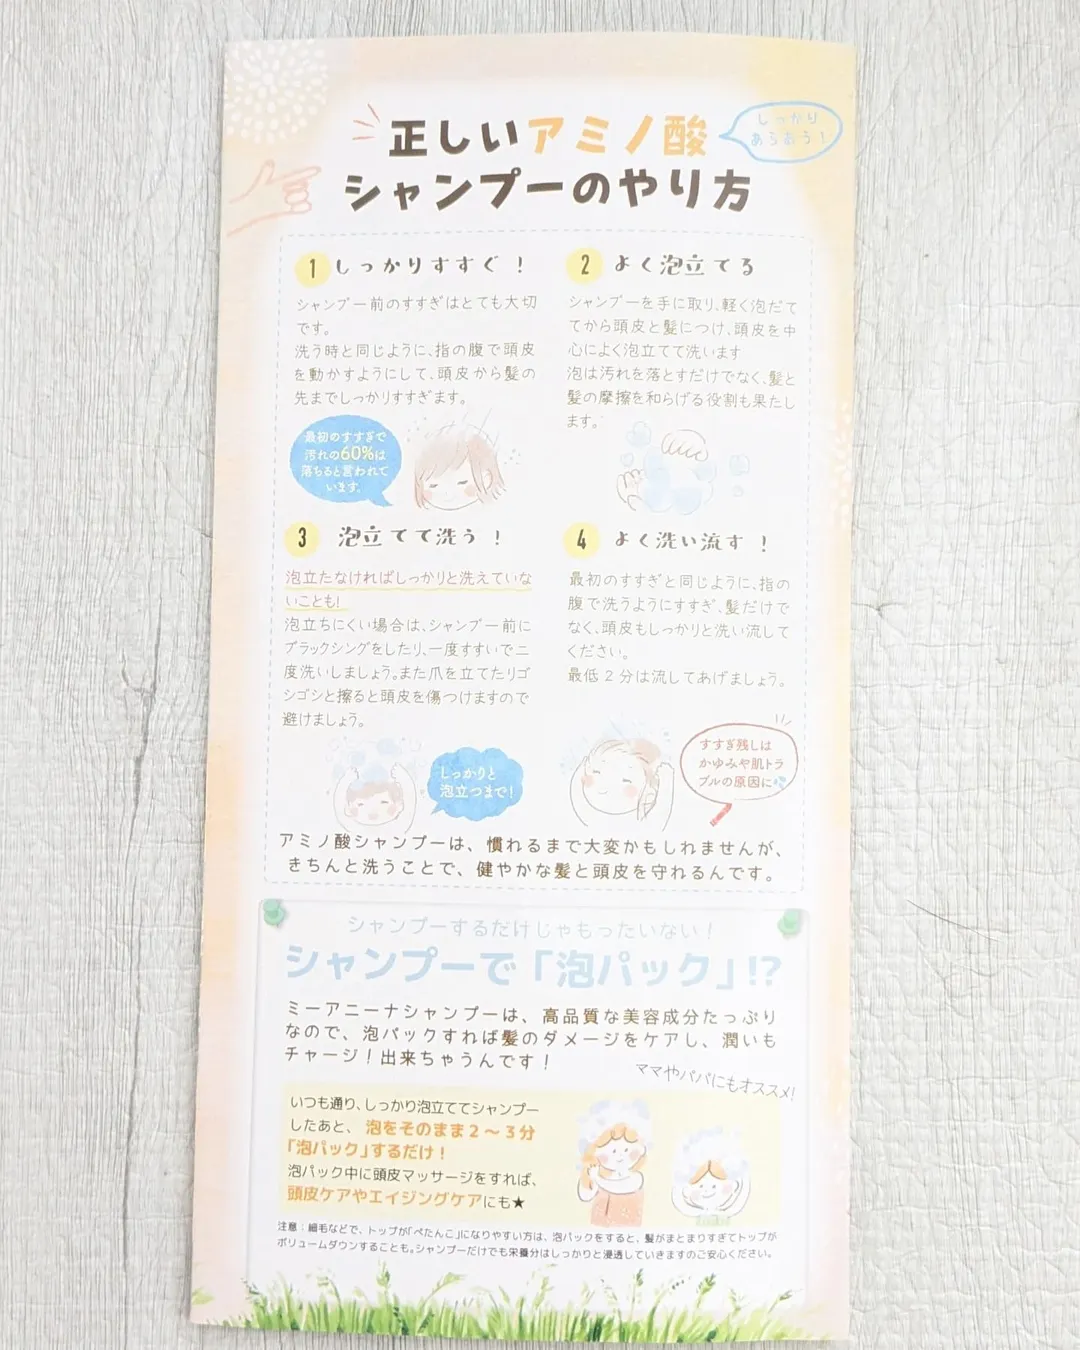 正しいアミノ酸
シャンプーのやり方
しっかり
あらおう！
1 しっかりすすぐ！
シャンプー前のすすぎはとても大切
です。
洗う時と同じように、指の腹で頭皮
を動かすようにして、頭皮から髪の
先までしっかりすすぎます。
最初のすすぎで
汚れの60%は
落ちると言われて
います。
2 よく泡立てる
シャンプーを手に取り、軽く泡だて
てから頭皮と髪につけ、頭皮を中
心によく泡立てて洗います
泡は汚れを落とすだけでなく、髪と
髪の摩擦を和らげる役割も果たし
ます。
3 泡立てて洗う！
泡立たなければしっかりと洗えていな
いことも!
泡立ちにくい場合は、シャンプー前に
ブラッシングをしたり、一度すすいで二
度洗いしましょう。また爪を立てたりゴ
シゴシと擦ると頭皮を傷つけますので
避けましょう。
しっかりと
泡立つまで！
4 よく洗い流す！
最初のすすぎと同じように、指の
腹で洗うようにすすぎ、髪だけで
なく、頭皮もしっかりと洗い流して
ください。
最低２分は流してあげましょう。
すすぎ残しは
かゆみや肌トラ
ブルの原因に
アミノ酸シャンプーは、慣れるまで大変かもしれませんが、
きちんと洗うことで、健やかな髪と頭皮を守れるんです。
シャンプーするだけじゃもったいない！
シャンプーで「泡パック」!?
ミーアニーナシャンプーは、高品質な美容成分たっぷり
なので、泡パックすれば髪のダメージをケアし、潤いも
チャージ！出来ちゃうんです！
ママやパパにもオススメ!
いつも通り、しっかり泡立ててシャンプー
したあと、泡をそのまま２～３分
「泡パック」するだけ！
泡パック中に頭皮マッサージをすれば、
頭皮ケアやエイジングケアにも★
注意：細毛などで、トップが「ぺたんこ」になりやすい方は、泡パックをすると、髪がまとまりすぎてトップが
ボリュームダウンすることも。シャンプーだけでも栄養分はしっかりと浸透していきますのご安心ください。